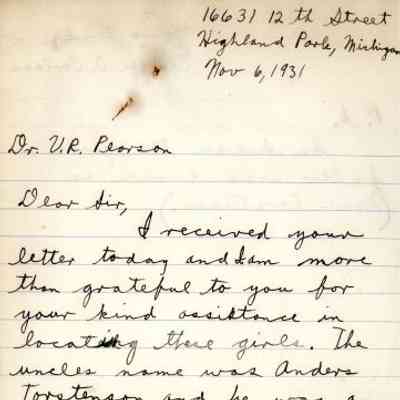 16631 12 th Street
Highland Park, Michigan
Nov 6, 1931
Dr. V.R. Pearson
Dear Sir,
I received your
letter today and I am more
than grateful to you for
your kind assistance in
locating these girls. The
uncles name was Anders
Torstenson and he was a